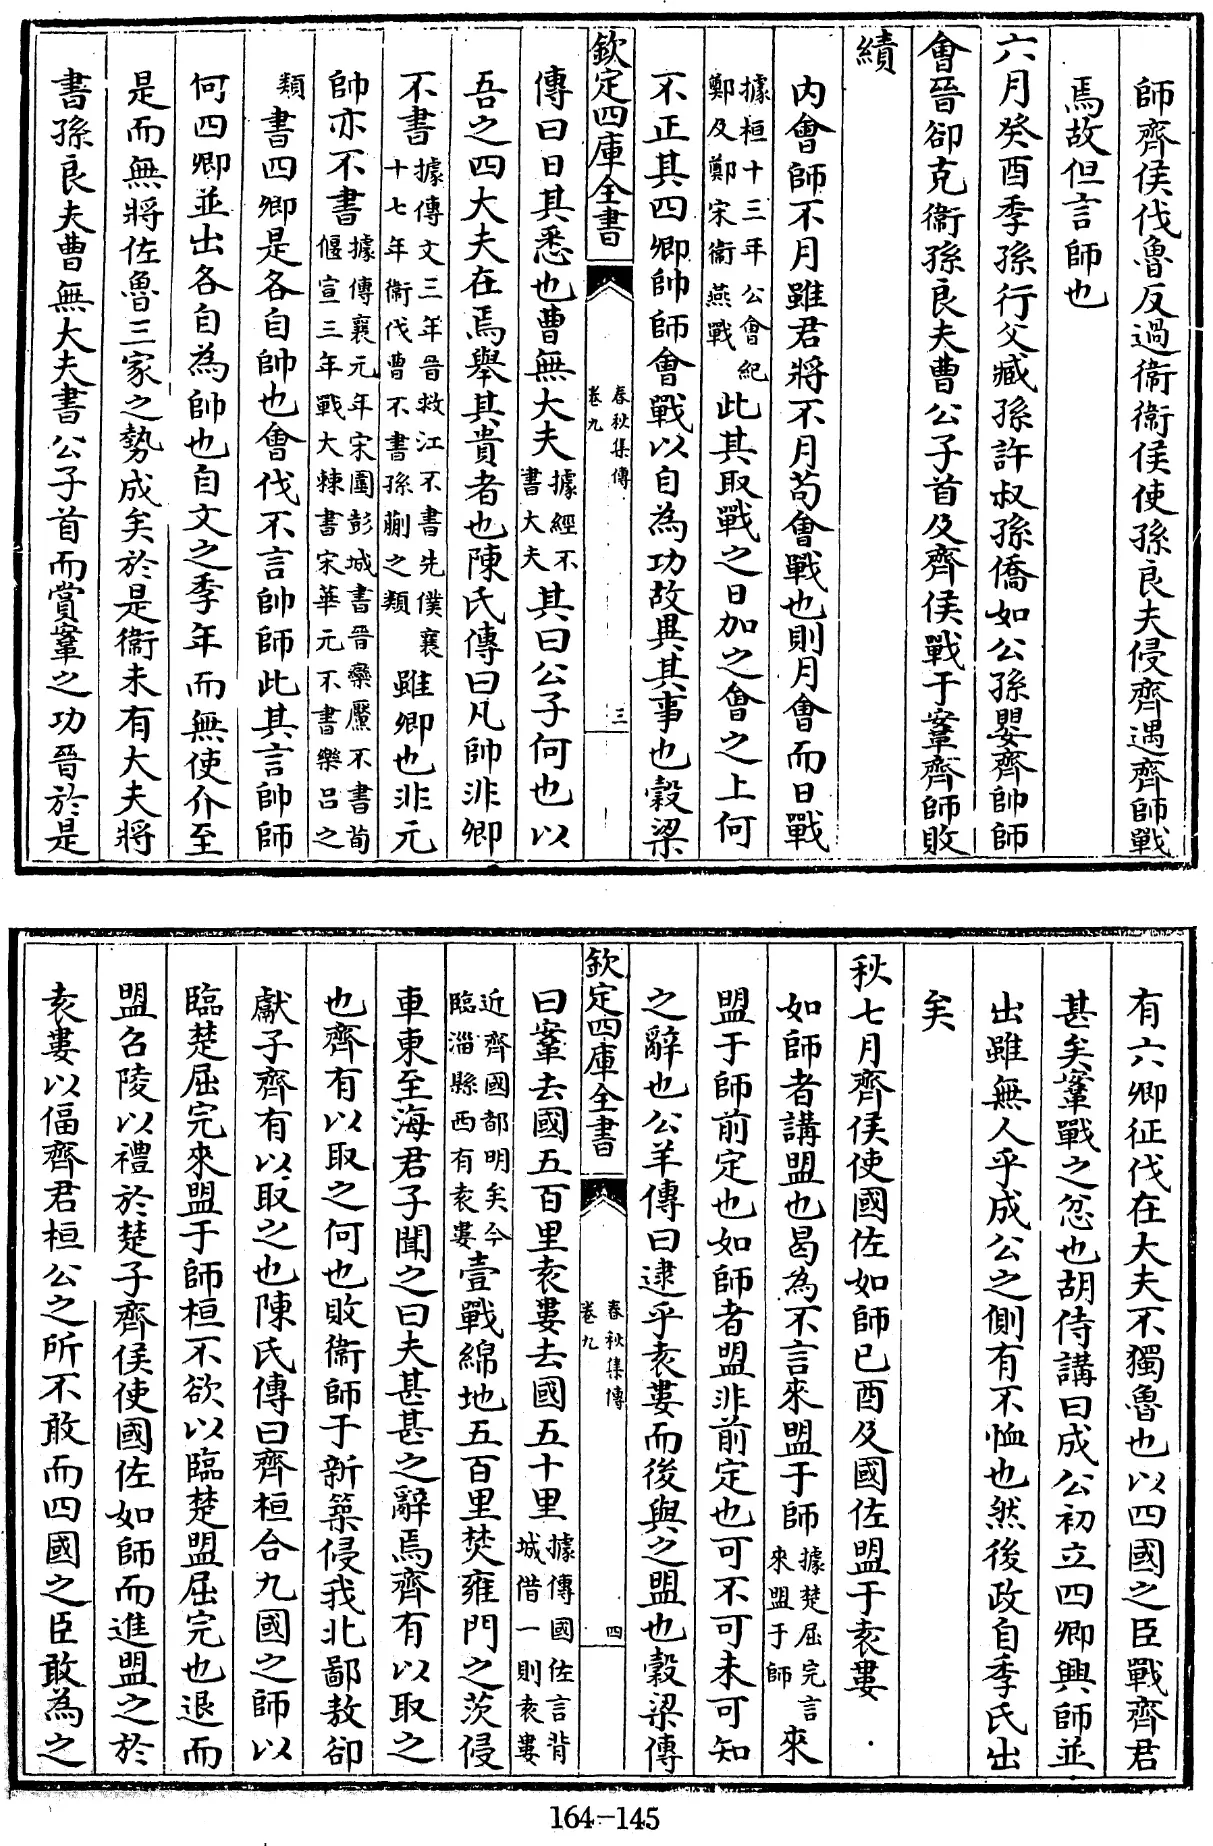 師齊侯伐魯反過衞衞侯使孫良夫侵齊遇齊師戰
焉故但言師也
六月癸酉季孫行父臧孫許叔孫僑如公孫嬰齊帥師
會晉卻克衞孫良夫曹公子首及齊侯戰于鞌齊師敗
績
內會師不月雖君將不月茍會戰也則月會而日戰
據桓十三年公會紀鄭及鄭宋衞燕戰此其取戰之日加之會之上何
不正其四卿帥師會戰以自為功故異其事也穀梁
欽定四庫全書
春秋集傳
卷九
三
傳曰日其悉也曹無大夫據經不書大夫其曰公子何也以
吾之四大夫在焉舉其貴者也陳氏傳曰凡帥非卿
不書據傳文三年晉救江不書先僕襄十七年衞伐曹不書孫蒯之類雖卿也非元
帥亦不書據傳襄元年宋圍彭城書晉欒黶不書荀偃宣三年戰大棘書宋華元不書樂呂之
類書四卿是各自帥也會伐不言帥師此其言帥師
何四卿並出各自為帥也自文之季年而無使介至
是而無將佐魯三家之勢成矣於是衞未有大夫將
書孫良夫曹無大夫書公子首而賞鞌之功晉於是
有六卿征伐在大夫不獨魯也以四國之臣戰齊君
甚矣鞌戰之忿也胡侍講曰成公初立四卿興師並
出雖無人乎成公之側有不恤也然後政自季氏出
矣
秋七月齊侯使國佐如師已酉及國佐盟于袁婁
如師者講盟也曷為不言來盟于師據楚屈完言來盟于師來
盟于師前定也如師者盟非前定也可不可未可知
之辭也公羊傳曰逮乎袁婁而後與之盟也穀梁傳
欽定四庫全書
春秋集傳
卷九
四
曰鞌去國五百里袁婁去國五十里據傳國佐言背城借一則袁婁
近齊國都明矣今臨淄縣西有袁婁壹戰綿地五百里焚雍門之茨侵
車東至海君子聞之曰夫甚甚之辭焉齊有以取之
也齊有以取之何也敗衞師于新築侵我北鄙敖卻
獻子齊有以取之也陳氏傳曰齊桓合九國之師以
臨楚屈完來盟于師桓不欲以臨楚盟屈完也退而
盟召陵以禮於楚子齊侯使國佐如師而進盟之於
袁婁以偪齊君桓公之所不敢而四國之臣敢為之
164-145